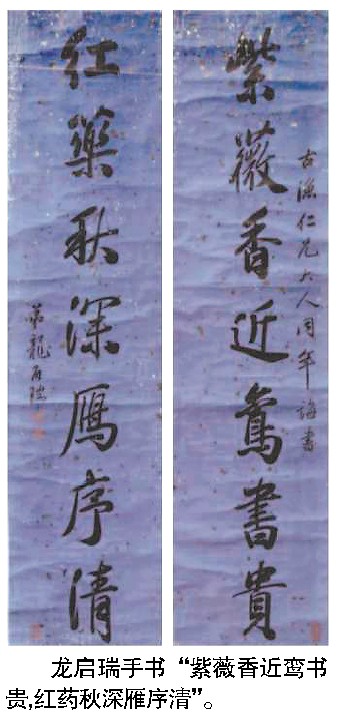 古漁仁兄大人同年誨書
紫薇香近鸞書貴
紅藥秋深鴈序清
弟龍啟瑞
龙启瑞手书“紫薇香近鸾书
贵,红药秋深雁序清”。